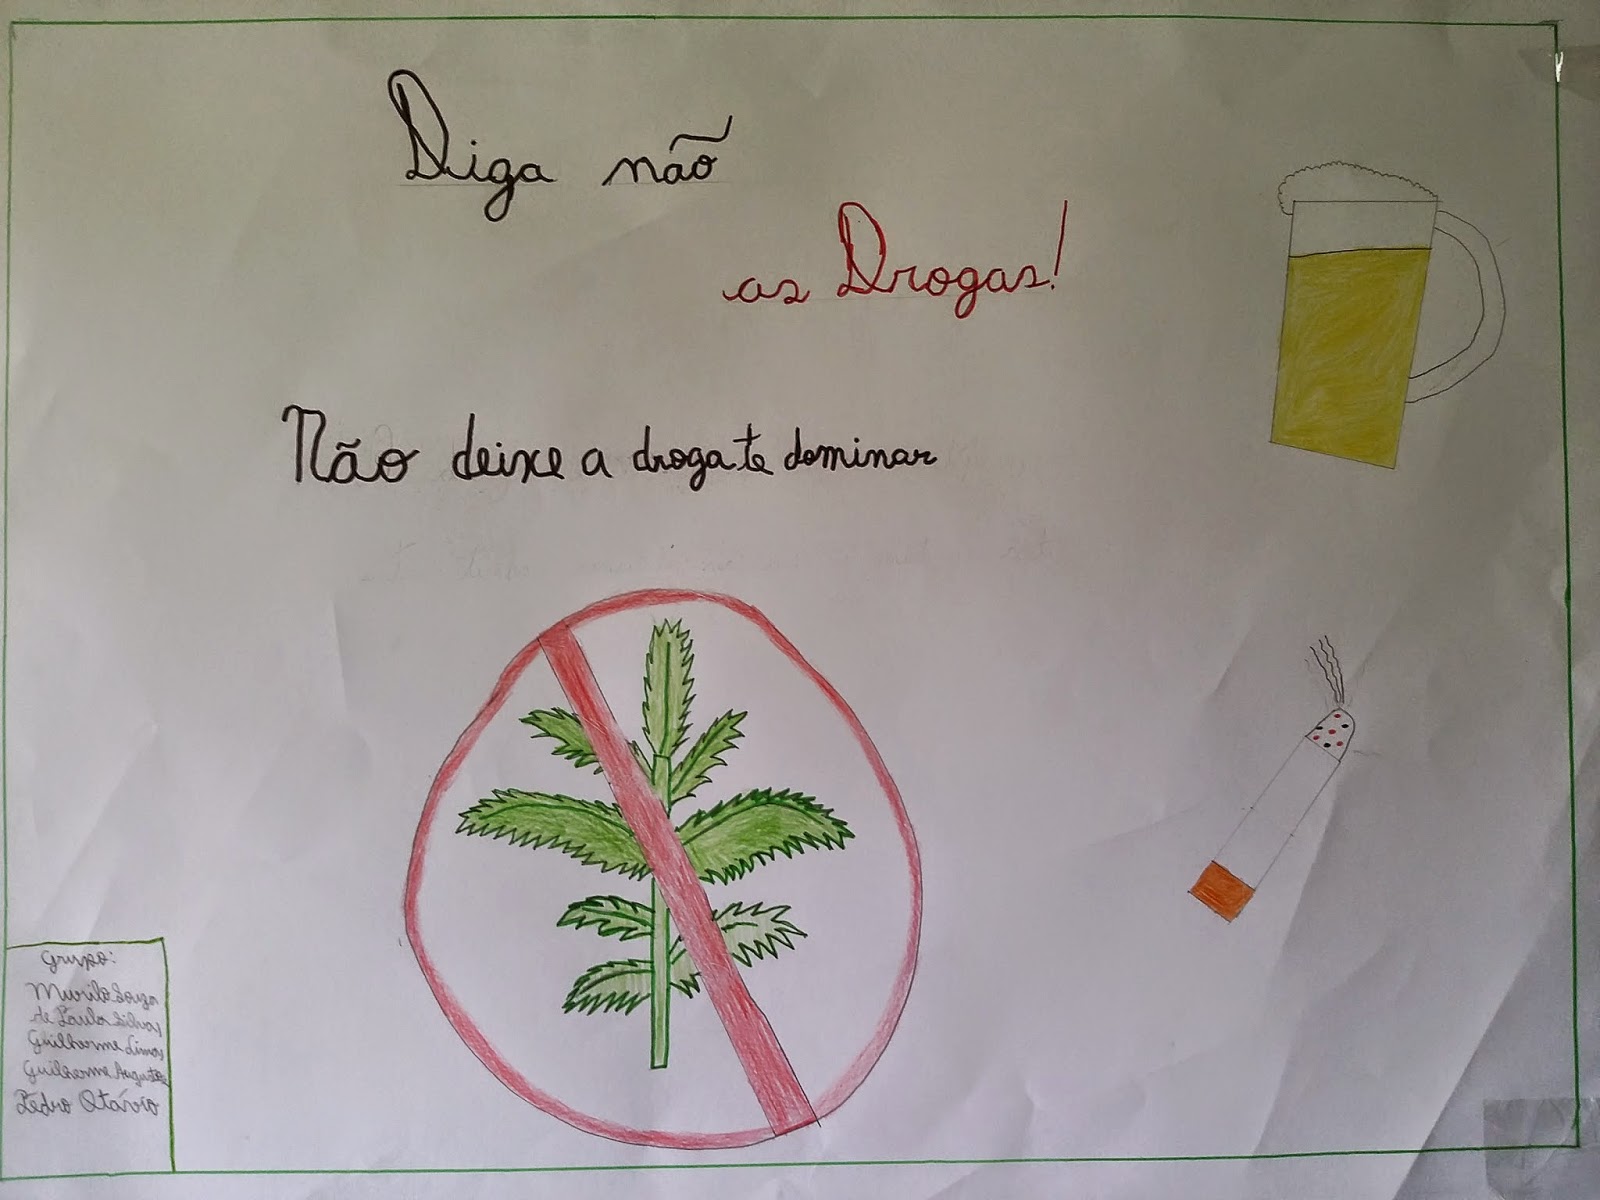 Diga não
as Drogas!
Não deixe a droga te dominar
Grupo:
Murilo Souza
de Paula Silva
Guilherme Lima
Guilherme Augusto
Pedro Otávio